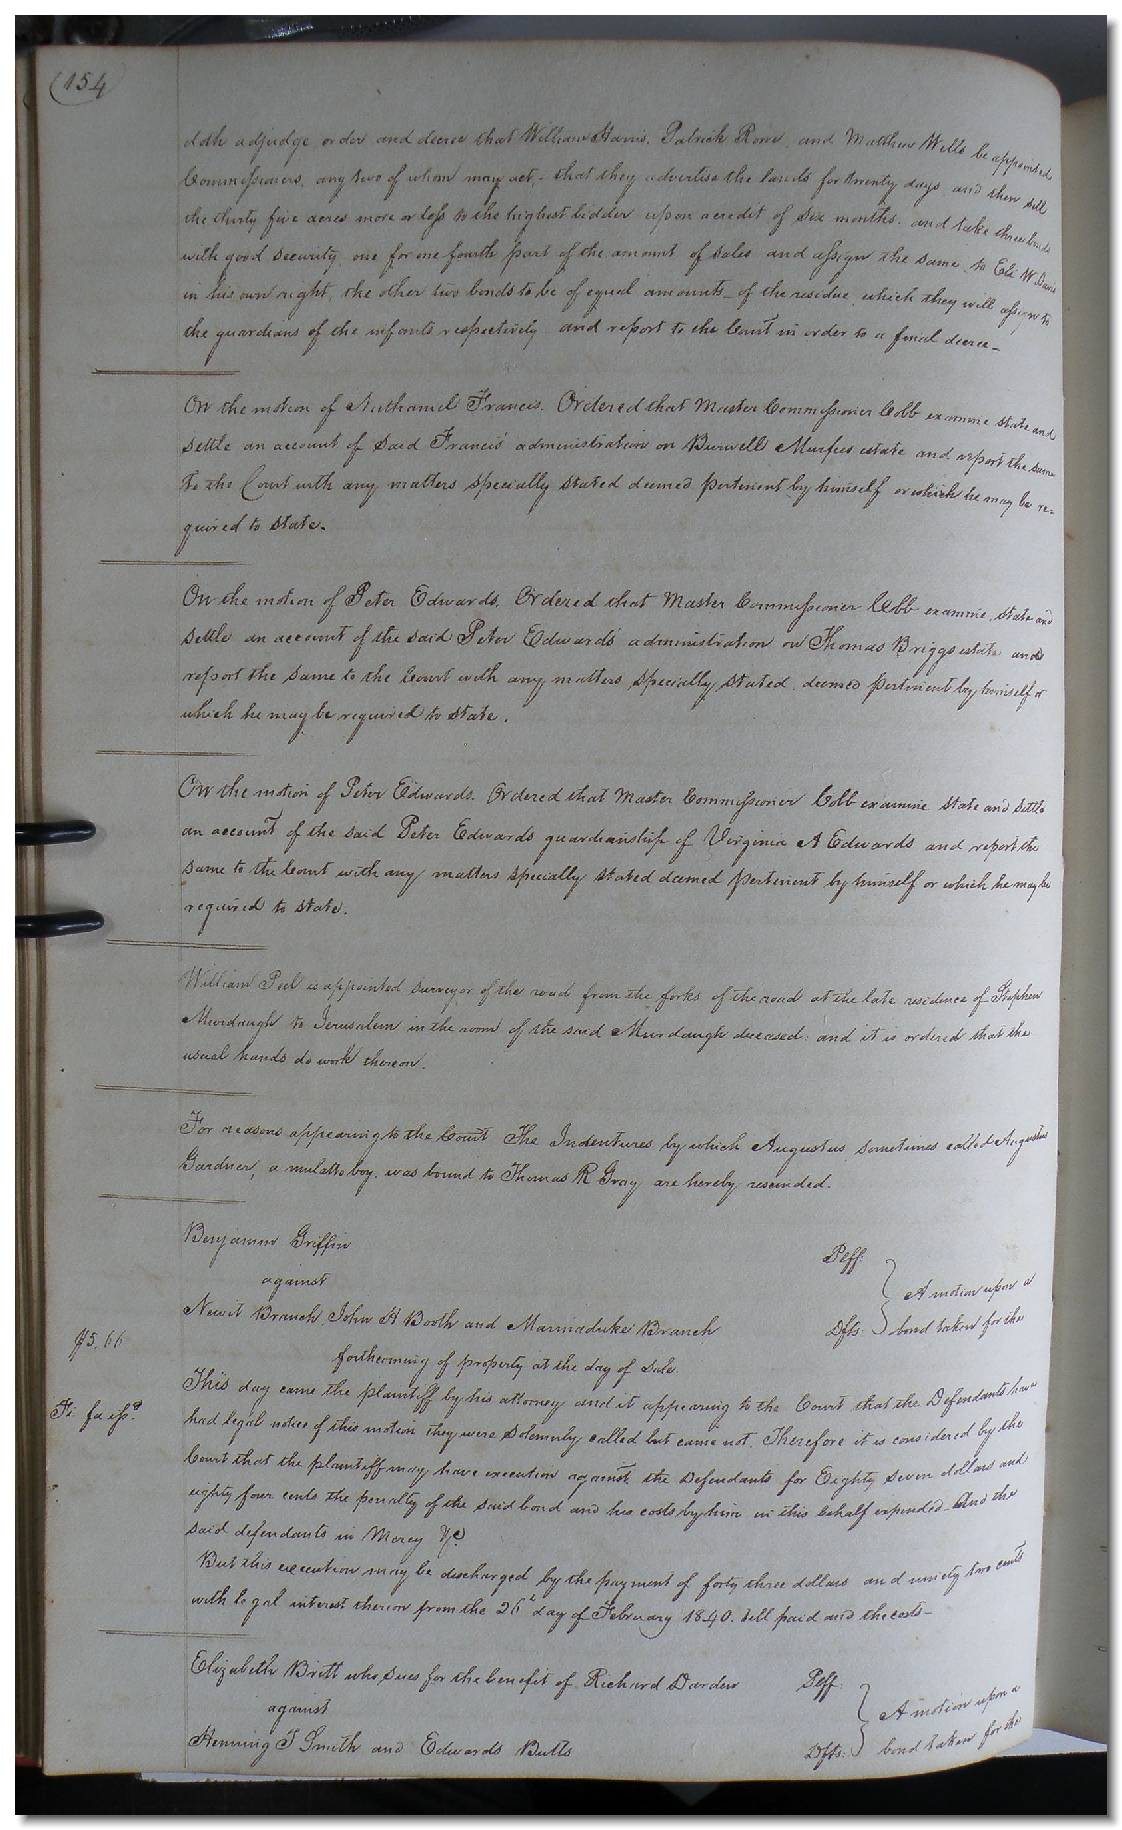 (154
doth adjudge order and decree that William Harris, Patrick Rowe, and Matthew Wills be appointed
Commissioners, any two of whom may act, - that they advertise the lands for twenty days and then sell
the thirty five acres more or less to the highest bidder upon a credit of six months. and take three bonds
with good security, one for one fourth part of the amount of sales and assign the same to Eli W. Davis
in his own right, the other two bonds to be of equal amounts of the residue, which they will assign to
the guardians of the infants respectively and report to the Court in order to a final decree -
On the motion of Nathaniel Francis. Ordered that Master Commissioner Cobb examine state and
settle an account of said Francis' administration on Burwell Murfees estate and report the same
to the Court with any matters specially stated deemed pertinent by himself or which he may be re-
quired to state.
On the motion of Peter Edwards. Ordered that Master Commissioner Cobb examine, state and
settle an account of the said Peter Edwards' administration on Thomas Briggs estate and
report the same to the Court with any matters specially stated deemed pertinent by himself or
which he may be required to state.
On the motion of Peter Edwards. Ordered that Master Commissioner Cobb examine state and settle
an account of the said Peter Edwards guardianship of Virginia A Edwards and report the
same to the Court with any matters specially stated deemed pertinent by himself or which he may be
required to state.
William Peel is appointed surveyor of the road from the forks of the road at the late residence of Stephen
Murdaugh to Jerusalem in the room of the said Murdaugh deceased: and it is ordered that the
usual hands do work thereon.
For reasons appearing to the Court The Indentures by which Augustus sometimes called Augustus
Gardner, a mulatto boy, was bound to Thomas R Gray are hereby rescinded.
Benjamin Griffin Plff:
against
Newit Branch, John A Booth and Marmaduke Branch Dfts:
A motion upon a
bond taken for the
forthcoming of property at the day of sale.
$5.66
This day came the plaintiff by his attorney and it appearing to the Court that the Defendants have
Fi fa issd.
had legal notice of this motion they were solemnly called but came not. Therefore it is considered by the
Court that the plaintiff may have execution against the Defendants for Eighty seven dollars and
eighty four cents the penalty of the said bond and his costs by him in this behalf expended - And the
said defendants in Mercy &c.
But this execution may be discharged by the payment of forty three dollars and ninety two cents
with legal interest thereon from the 26t day of February 1840. till paid and the costs -
Elizabeth Britt who sues for the benefit of Richard Darden Plff:
against
Henning T Smith and Edwards Butts Dfts:
A motion upon a
bond taken for the